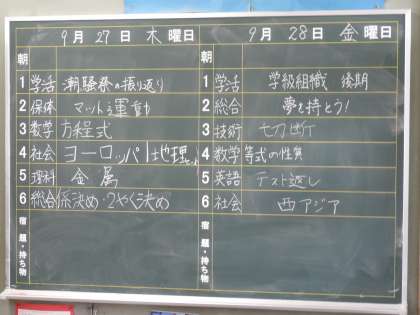 9月27日 木曜日
朝
1 学活 潮騒祭の振り返り
2 保体 マット運動
3 数学 方程式
4 社会 ヨーロッパ州地理
5 理科 金属
6 総合 係決め・2やく決め
宿題・持ち物
9月28日 金曜日
朝
1 学活 学級組織 後期
2 総合 夢を持とう!
3 技術 切断
4 数学 等式の性質
5 英語 テスト返し
6 社会 西アジア
宿題・持ち物